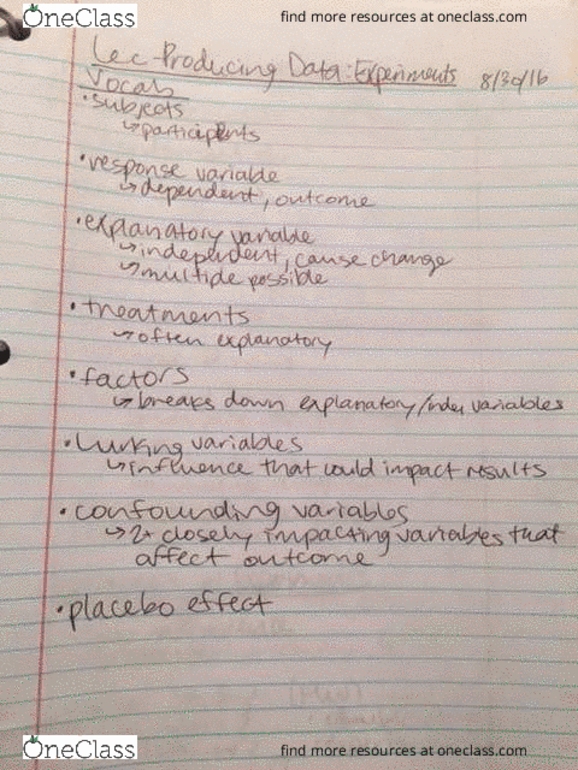 OneClass
find more resources at oneclass.com
Lec-Producing Data: Experiments 8/30/16
Vocab
• subjects
↳ participents
• response variable
↳ dependent, outcome
• explanatory variable
↳ independent, cause change
↳ multiple possible
• treatments
↳ often explanatory
• factors
↳ breaks down explanatory/ variables
• Lurking variables
↳ influence that could impact results
• confounding variables
↳ 2+ closely impacting variables that
affect outcome
• placebo effect
OneClass
find more resources at oneclass.com